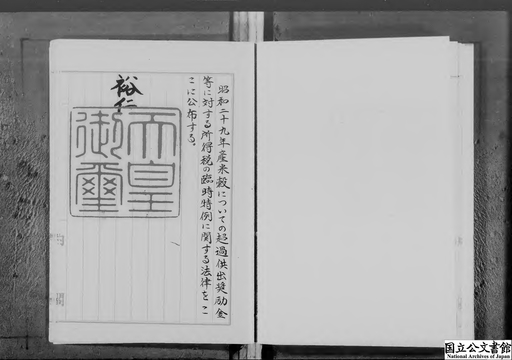 昭和二十九年産米穀についての超過供出奨励金
等に対する所得税の臨時特例に関する法律をこ
こに公布する。
裕仁
天皇
御璽
国立公文書館
National Archives of Japan